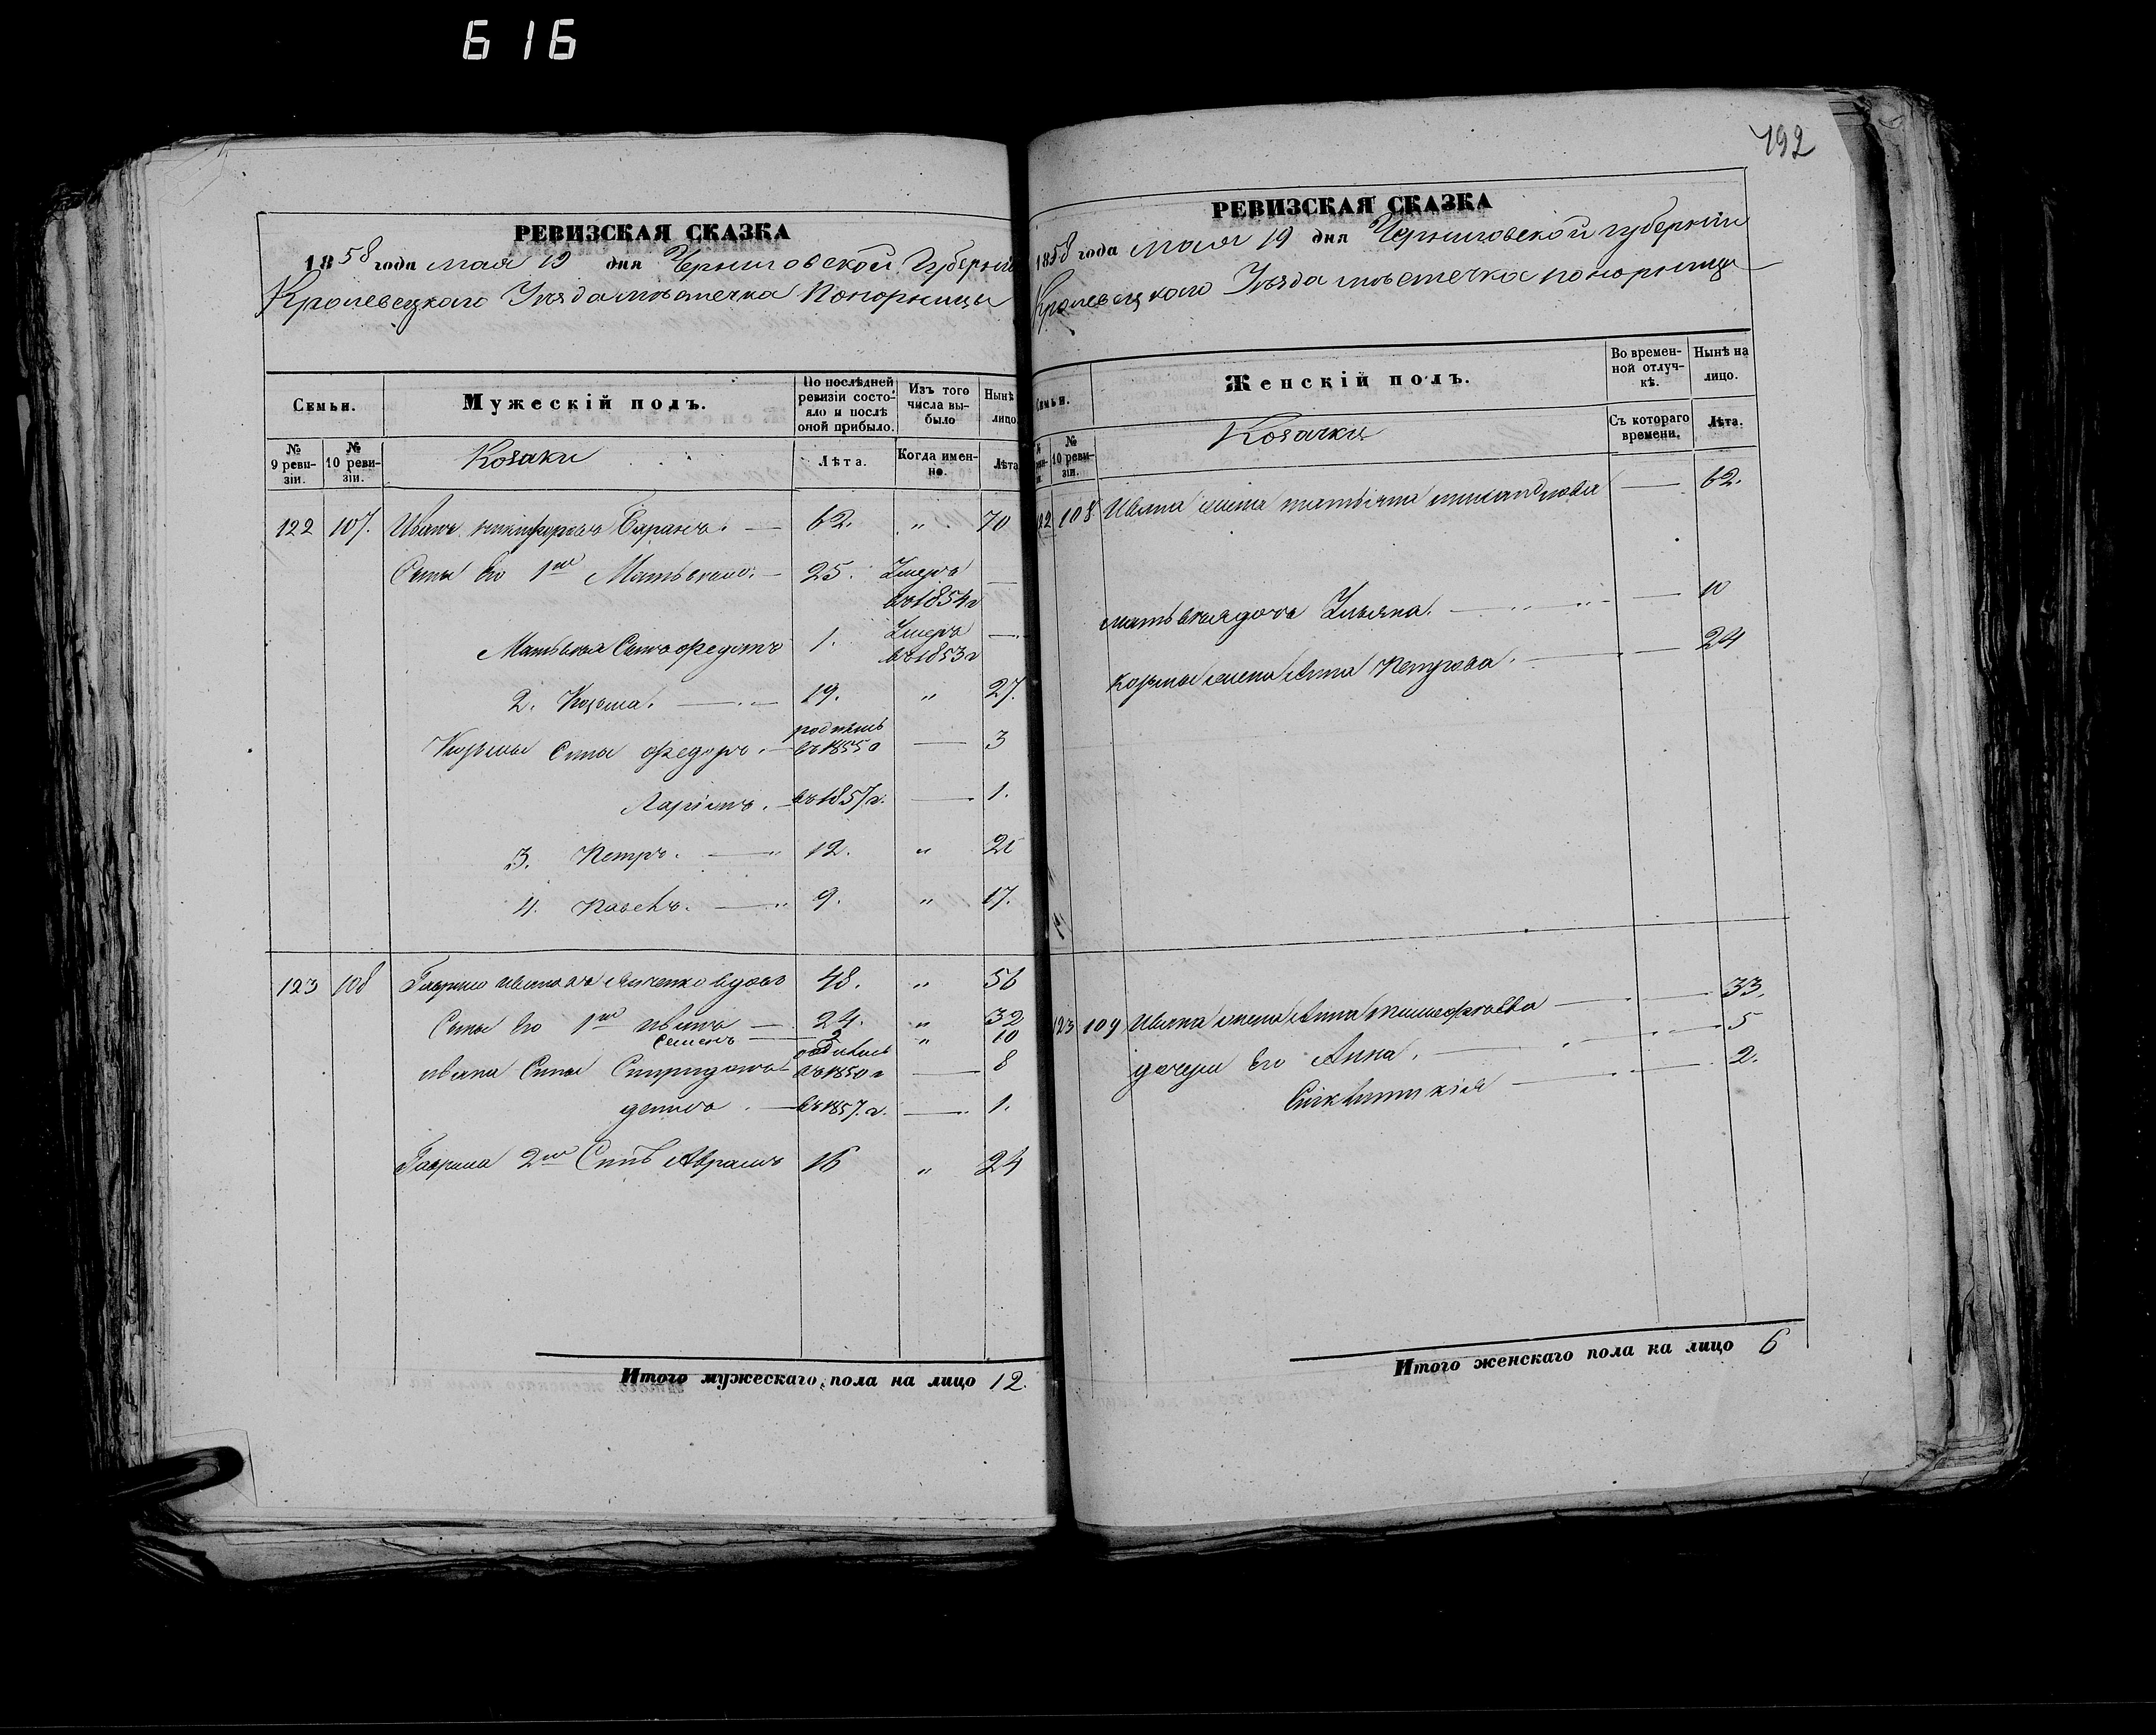 616
РЕВИЗСКАЯ СКАЗКА
1858 года мая 19 дня Черниговской Губерніи
Кролевецкаго Уѣзда мѣстечка Понорницы
Семьи.
Мужескій полъ.
По послѣдней ревизіи состояло и послѣ оной прибыло.
Изъ того числа выбыло
Нынѣ лицо.
№ 9 ревизіи.
№ 10 ревизіи.
Козаки
Лѣта.
Когда именно.
Лѣта
122 107. Иванъ Никифоровъ Баранъ. 62. " 70
Сыны Его 1й Матвѣй 25. Умеръ въ 1854 г
Матвѣя Сынъ Федотъ 1. Умеръ въ 1853 г
2. Козьма. 19. " 27.
Козьмы Сыны Федоръ. родился въ 1855 г 3
Ларіонъ. въ 1857 г. 1.
3. Петръ. 12. " 20
4. Павелъ. 9. " 17.
123 108 Гаврило Ивановъ вдовъ 48. " 56
Сыны Его 1й Иванъ 24. " 32
Семенъ 2 " 10
Ивана Сыны Спиридонъ родился въ 1850 г 8
Денисъ. въ 1857. г. 1.
Гаврила 2й Сынъ Абрамъ 16 " 24
Итого мужескаго пола на лицо 12.
192
РЕВИЗСКАЯ СКАЗКА
1858 года мая 19 дня Черниговской Губерніи
Кролевецкаго Уѣзда мѣстечка Понорницы
Женскій полъ.
Во временной отлучкѣ.
Нынѣ на лицо.
№ 10 ревизіи.
Козачки
Съ котораго времени.
Лѣта.
122 108. Ивана жена 62.
Матвѣя дочь Ульяна. 10
Козьмы жена Анна Петрова. 24
123 109 Ивана жена Анна Тимофѣева 33.
дочери Его Анна. 5
Синклитикія 2.
Итого женскаго пола на лицо 6